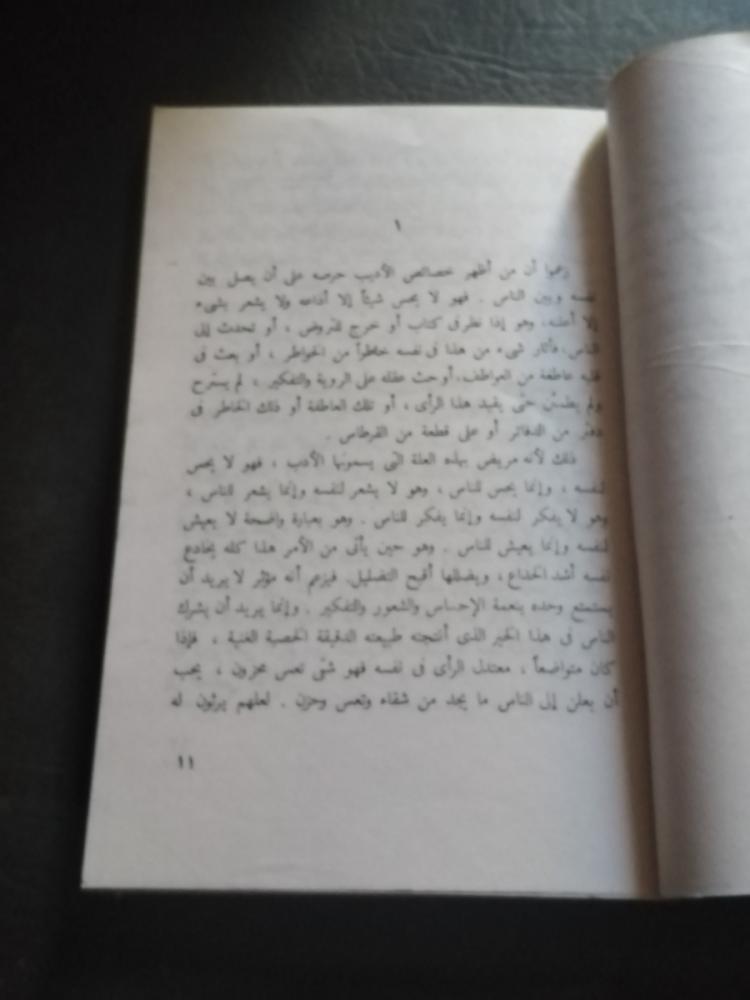 ١
زعموا أن من أظهر خصائص الأديب حرصه على أن يصل بين
نفسه وبين الناس . فهو لا يحس شيئاً إلا أذاعه ولا يشعر بشىء
إلا أعلنه. وهو إذا نظر فى كتاب أو خرج للتروض ، أو تحدث إلى
الناس، فأثار شىء من هذا فى نفسه خاطراً من الخواطر ، أو بعث فى
قلبه عاطفة من العواطف، أو حث عقله على الروية والتفكير ، لم يسترح
ولم يطمئن حتى يقيد هذا الرأى ، أو تلك العاطفة أو ذلك الخاطر فى
دفتر من الدفاتر أو على قطعة من القرطاس .
ذلك لأنه مريض بهذه العلة التى يسمونها الأدب ، فهو لا يحس
لنفسه ، وإنما يحس للناس ، وهو لا يشعر لنفسه وإنما يشعر للناس ،
وهو لا يفكر لنفسه وإنما يفكر للناس . وهو بعبارة واضحة لا يعيش
لنفسه وإنما يعيش للناس . وهو حين يأتى من الأمر هذا كله يخادع
نفسه أشد الخداع ، ويضللها أقبح التضليل. فيزعم أنه مؤثر لا يريد أن
يستمتع وحده بنعمة الإحساس والشعور والتفكير . وإنما يريد أن يشرك
الناس فى هذا الخير الذى أنتجته طبيعته الدقيقة الخصبة الغنية ، فإذا
كان متواضعاً ، معتدل الرأى فى نفسه فهو شقى تعس محزون ، يحب
أن يعلن إلى الناس ما يجد من شقاء وتعس وحزن . لعلهم يرثون له
١١